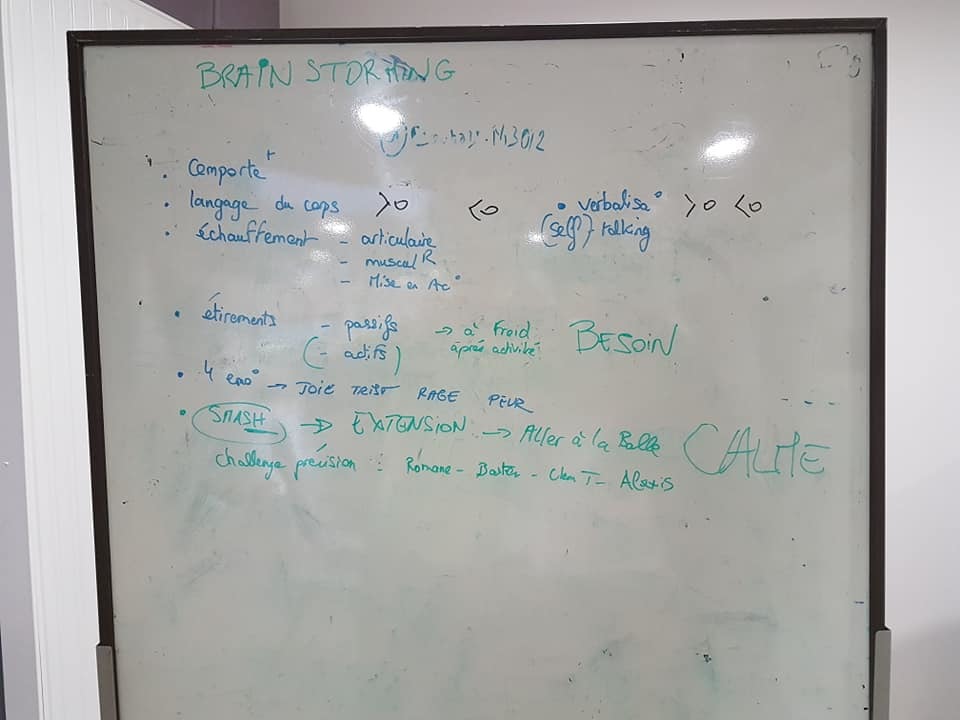 BRAIN STORMING
• Comporte^t
• langage du corps >0 <0 • verbalisa° >0 <0
(self) talking
• échauffement - articulaire
- muscul^R
- Mise en Ac°
• étirements - passifs → à Froid BESOIN
(- actifs) après activité
• 4 emo° → JOIE TRIST RAGE PEUR
• SMASH → EXTENSION → Aller à la Balle CALME
challenge précision : Romane - - Clem T - Alexis